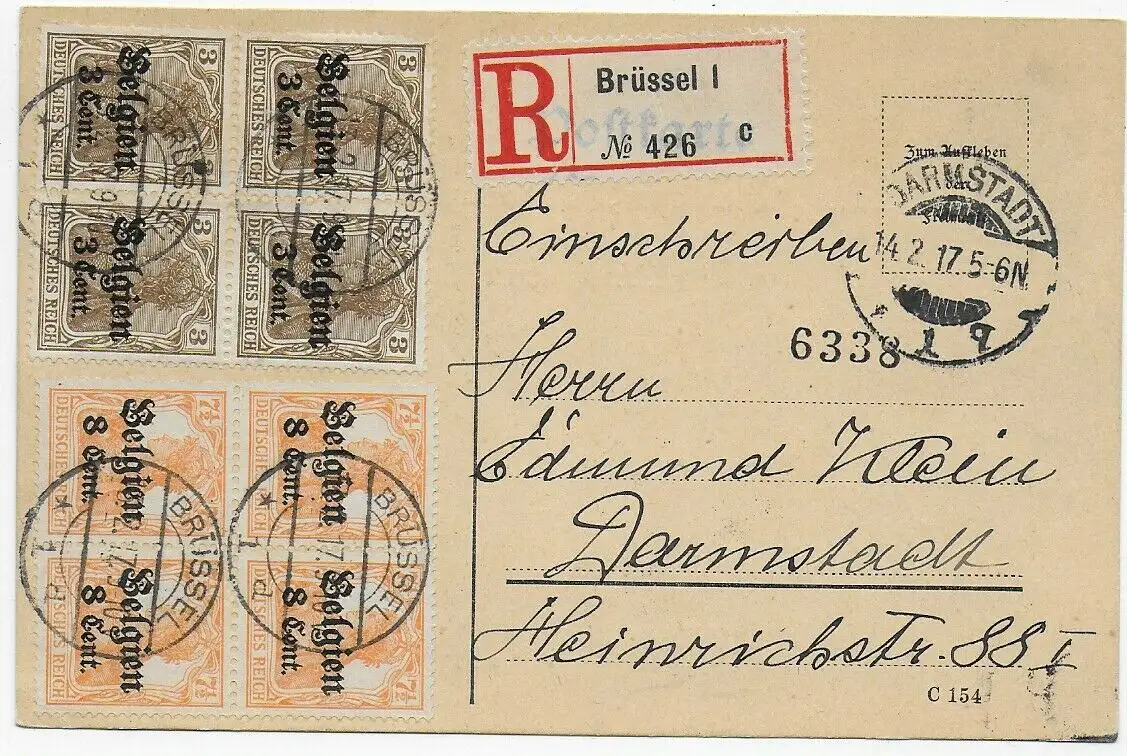 3
DEUTSCHES REICH
Belgien
3 Cent.
3
DEUTSCHES REICH
Belgien
3 Cent.
3
DEUTSCHES REICH
Belgien
3 Cent.
3
DEUTSCHES REICH
Belgien
3 Cent.
7½
DEUTSCHES REICH
Belgien
8 Cent.
7½
DEUTSCHES REICH
Belgien
8 Cent.
7½
DEUTSCHES REICH
Belgien
8 Cent.
7½
DEUTSCHES REICH
Belgien
8 Cent.
BRÜSSEL
BRÜSSEL
BRÜSSEL
BRÜSSEL
R
Brüssel 1
№ 426 c
Postkarte
Zum Aufkleben
der
DARMSTADT
14.2.17.5-6N.
Einschreiben
6338
Herrn
Edmund Klein
Darmstadt
Heinrichstr. 88 I
C 154